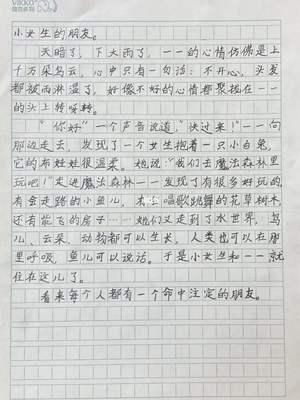 VIKKO
小女生的朋友。
天暗了，下大雨了，一一的心情仿佛是上
千万朵乌云，心中只有一句话：不开心，头发
都被雨淋湿了，好像不好的心情都聚拢在一一
的头上转呀转。
“你好”一个声音说道，“快过来！”一一向
那边走去，发现了一个女生抱着一只小白兔，
它的布娃娃很温柔。她说“我们去魔法森林里
玩吧！”走进魔法森林一一发现了有很多好玩的，
有会走路的小鱼儿，有会唱歌跳舞的花草树木
还有能飞的房子……她们又走到了水世界，鸟
儿、云朵、动物都可以生长，人类也可以在那
里呼吸，鱼儿可以说话。于是小女生和一一就
住在这儿了。
看来每个人都有一个命中注定的朋友。